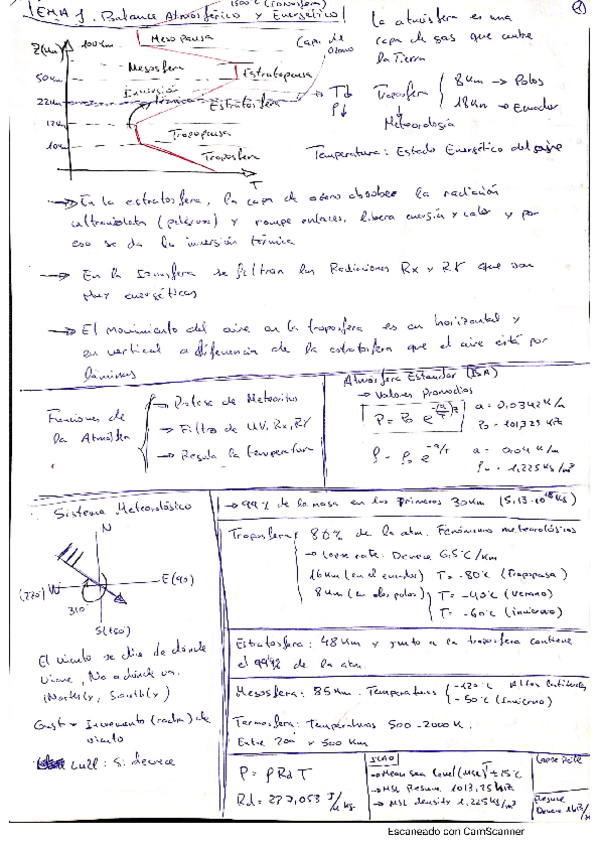 TEMA 1. Balance Atmosférico y Energético
1500°C (Ionosfera)
Z(km)
100km
Mesopausa
Capa de
Ozono
Mesosfera
50km
Estratopausa
Inversión
térmica
22km
Estratosfera
T↓
P↓
12km
Tropopausa
10km
Troposfera
T
La atmósfera es una
capa de gas que cubre
la Tierra
Troposfera
8km → Polos
18km → Ecuador
Meteorología
Temperatura: Estado Energético del aire
→ En la estratosfera, la capa de ozono absorbe la radiación
ultravioleta (peligrosa) y rompe enlaces, libera energía y calor y por
eso se da la inversión térmica
→ En la Ionosfera se filtran las Radiaciones Rx y RY que son
muy energéticas
→ El movimiento del aire en la troposfera es en horizontal y
en vertical a diferencia de la estratosfera que el aire está por
láminas
Funciones de
la Atmósfera
→ Protege de Meteoritos
→ Filtro de UV, Rx, RY
→ Regula la temperatura
Atmosfera Estandar (ISA)
→ Valores promedios
a = 0,0342 K/m
P₀ = 101,325 kPa
a = 0,04 K/m
ρ₀ = 1,225 kg/m³
Sistema Meteorológico
N
(270) W
E (90)
310°
S (180°)
El viento se dice de dónde
viene, No a dónde va.
Gust = Incremento (racha) de
viento
Lull: Si decrece
→ 99% de la masa en los primeros 30km
Troposfera
80% de la atm. Fenómenos meteorológicos
→ Lapse rate: Decrece 6,5°C/km
16km (en el ecuador) T = -80°C (Tropopausa)
8km (en los polos)
T = -40°C (verano)
T = -60°C (invierno)
Estratosfera: 48km y junto a la troposfera contiene
el 99% de la atm.
Mesosfera: 85km. Temperaturas
-120°C
-50°C (Invierno)
Termosfera: Temperaturas 500-2000K.
Entre 200 y 500 km
P = ρ Rd T
ICAO
→ Mean sea level (MSL) T = 15°C
→ MSL Pressure 1013,25
→ MSL density 1,225 kg/m³
Lapse Rate
Pressure
Decrece
Escaneado con CamScanner